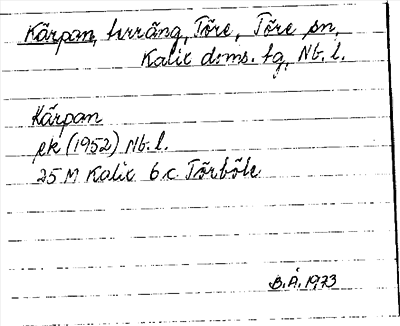 Kärpan, terräng, Töre, Töre sn,
Kalix doms. tg, Nb. l.
Kärpan
ek (1952) Nb. l.
25 M Kalix 6 c Törböle
B.Å. 1973